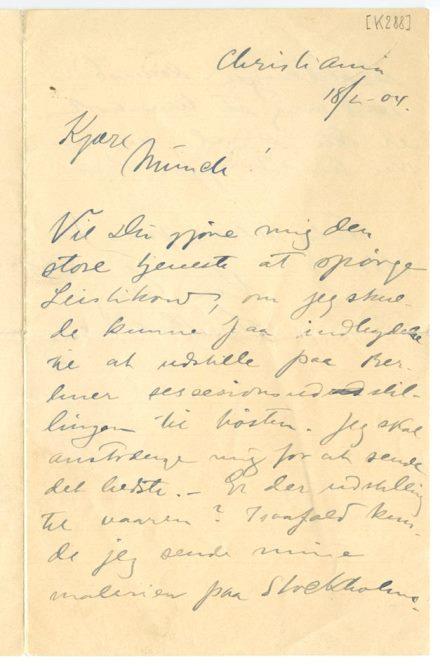 [K288]
Christiania
18/2-04.
Kjære
Munch!
Vil Du gjøre mig den
store tjeneste at spørge
Leistikow, om jeg skul-
de kunne faa indbydelse
til at udstille paa Ber-
liner secessionsudstil-
lingen til høsten. Jeg skal
anstrænge mig for at sende
det bedste. – Er der udstilling
til vaaren? Isaafald kun-
de jeg sende mine
malerier paa Stockholms-